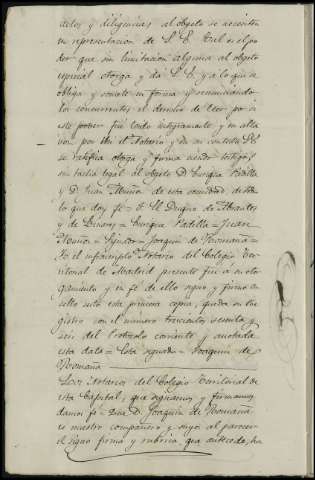 actos y diligencias al objeto se necesiten
su representacion de S. E. Tal es el po
der que sin limitacion alguna al objeto
especial otorga y da S. E. y a lo que se
obliga y somete en forma y renunciando
los concurrentes el derecho de leer por si
este poder fué leido integramente y en alta
voz por mi el Notario y de su contesto S. E.
se ratifica otorga y firma siendo testigos
sin tacha legal al objeto D. Enrique Padilla
y D. Juan Muñoz de esta vecindad de to
do lo que doy fe = El Duque de Abrantes
y de Linares = Enrique Padilla = Juan
Muñoz = Signado = Joaquin de Romaña =
Yo el infrascripto Notario del Colegio Ter
ritorial de Madrid presente fui a su otor
gamiento y en fé de ello signo y firmo en
sello esta primera copia, queda en mi re
gistro con el número trescientos sesenta y
seis del Protocolo corriente y anotada
esta data = Esta signado = Joaquin de
Romaña
Los Notarios del Colegio Territorial de
esta Capital, que signamos y firmamos,
damos fé: Que D. Joaquin de Romaña
es nuestro compañero y suyo al parecer
el signo firma y rubrica, que antecede, ha